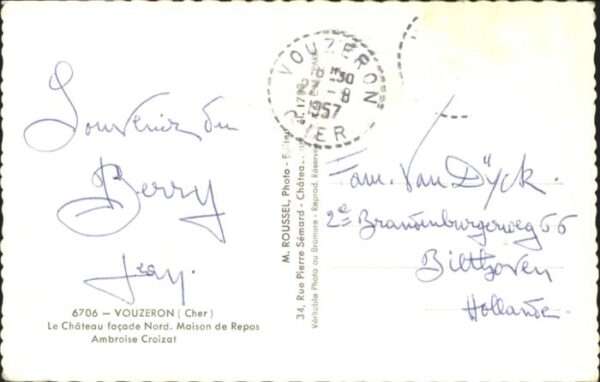 Souvenir du
Berry
Jeay.
6706 — VOUZERON (Cher)
Le Château façade Nord. Maison de Repos
Ambroise Croizat
VOUZERON
CHER
18 H30
23 - 8
1957
M. ROUSSEL, Photo -
34, Rue Pierre Sémard - Château
Véritable Photo au Bromure - Reprod. Réservée
Fam. Van Dÿck.
2e Brandenburgerweg 66
Bilthoven
Hollande.